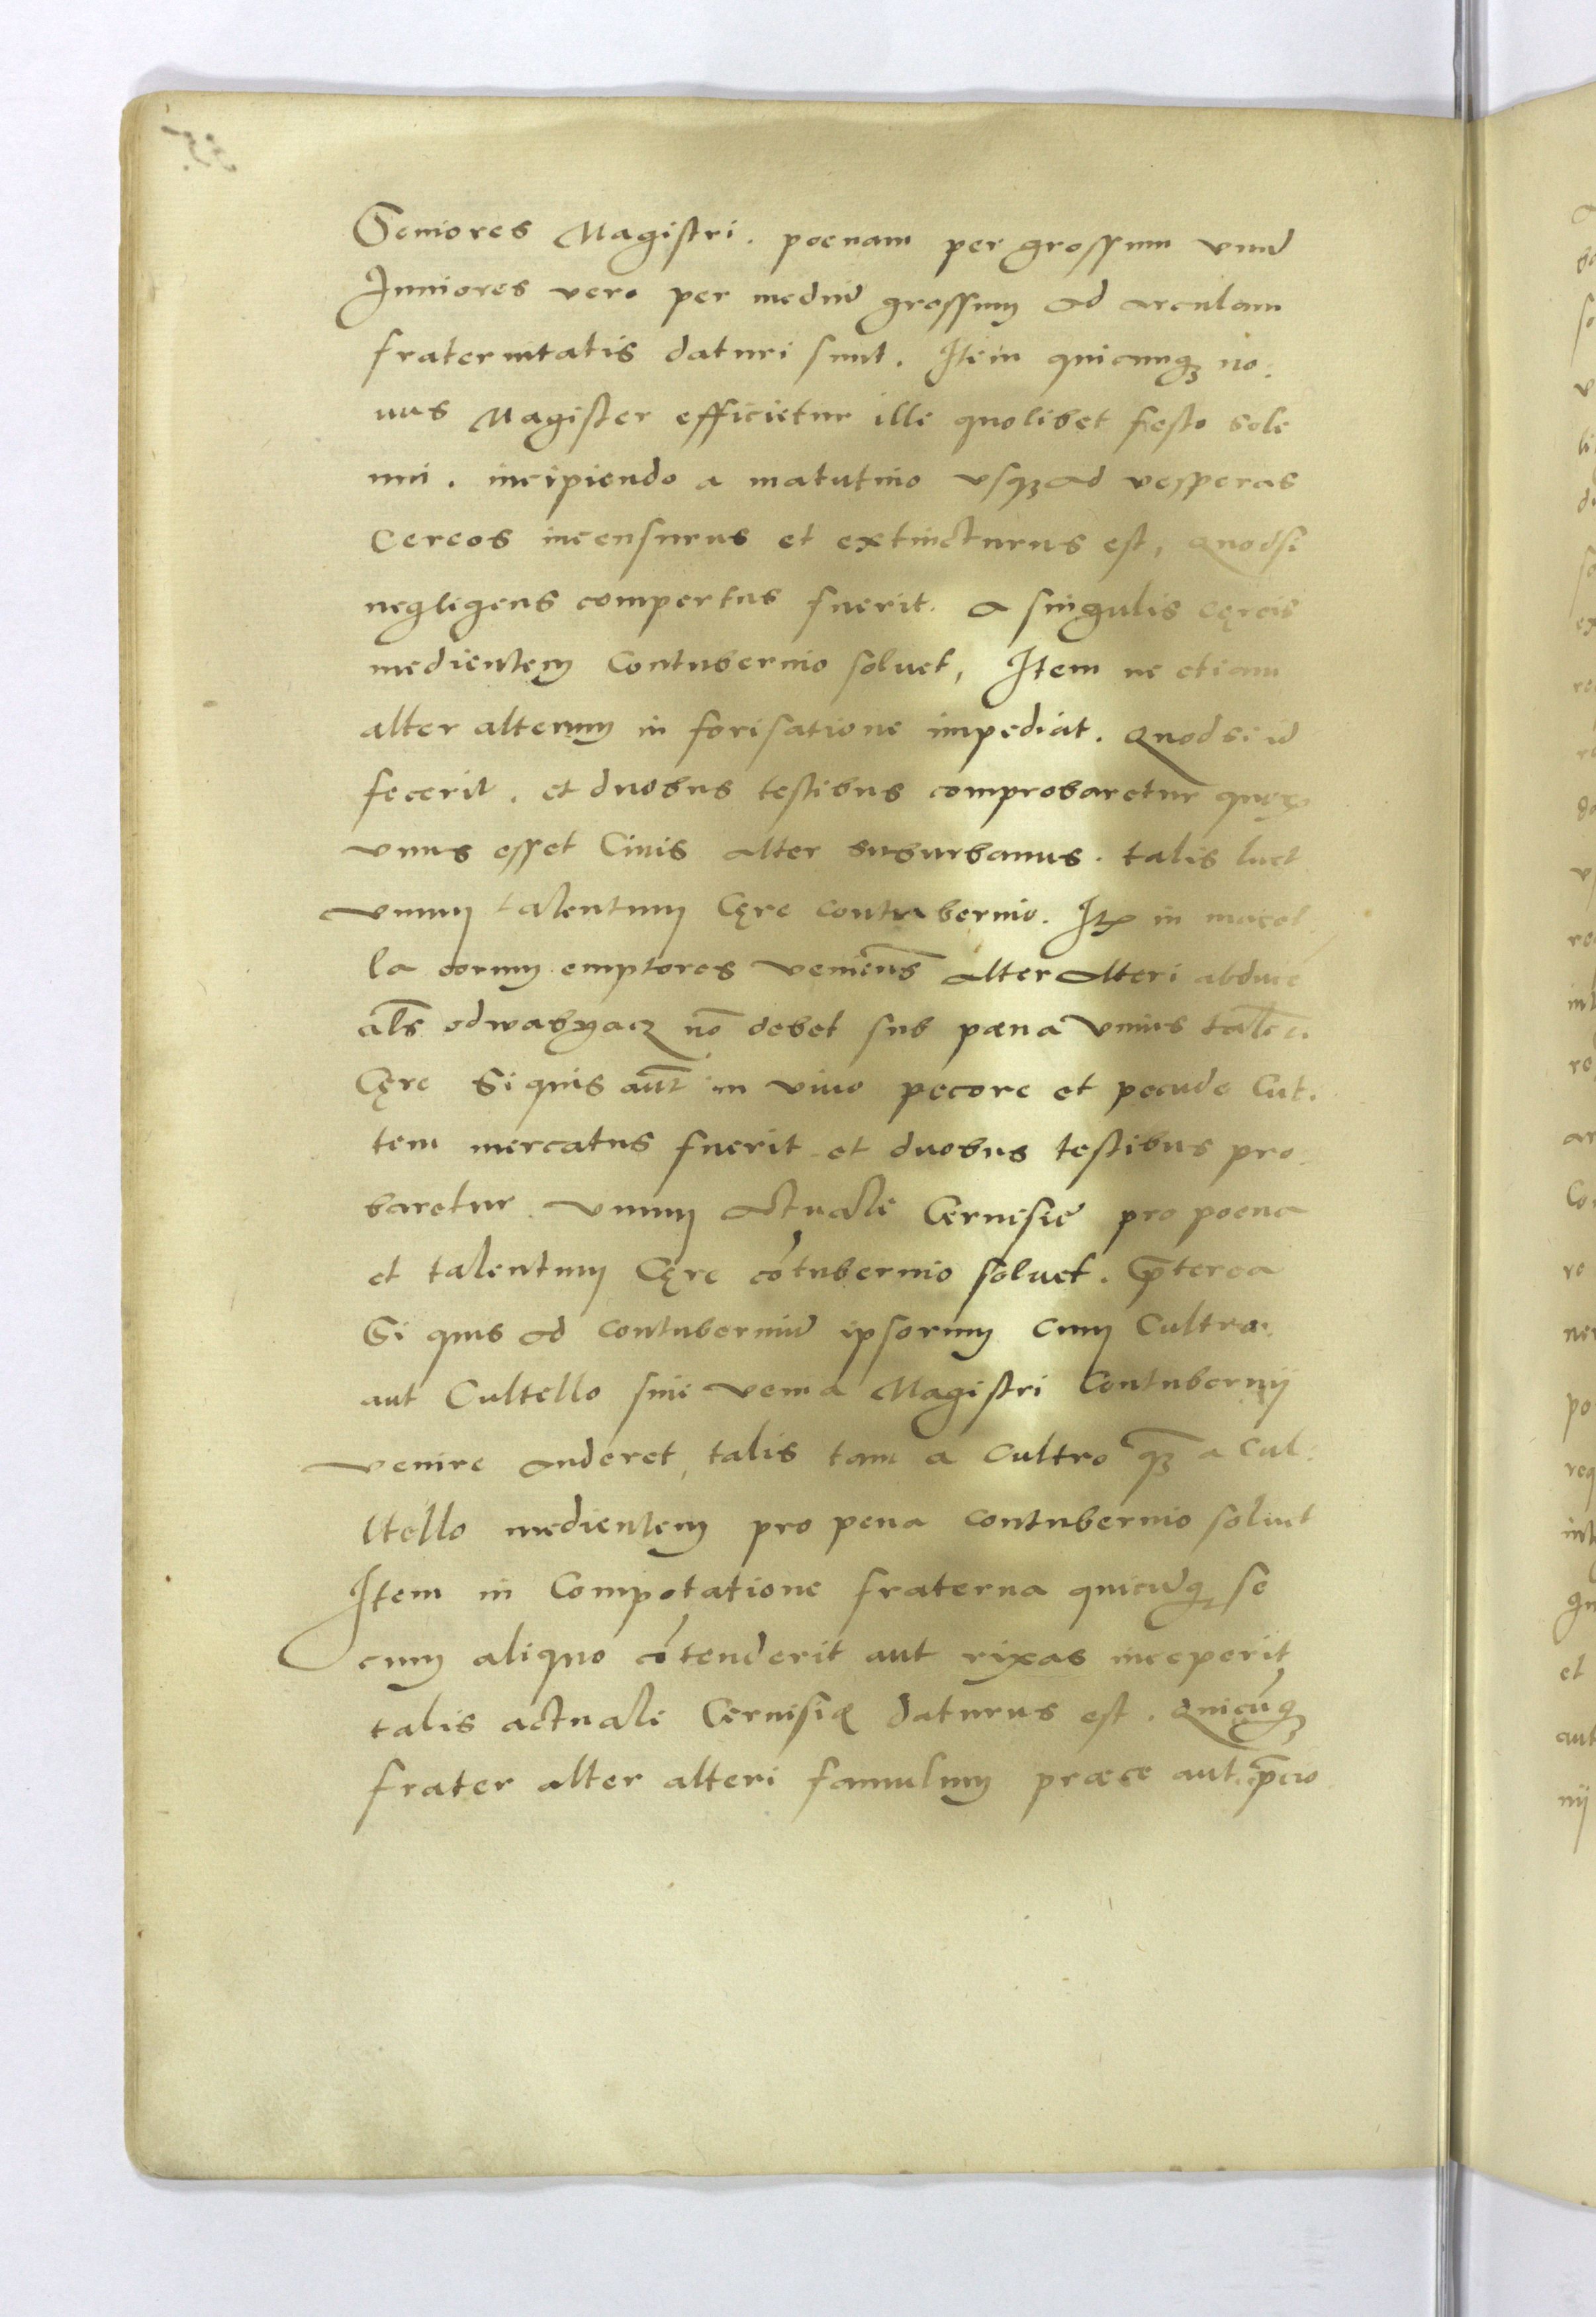 Seniores Magistri. poenam per grossum vnū
Iuniores vero per mediū grossum ad arculam
fraternitatis daturi sunt. Item quicunqꝫ no:
uus Magister efficietur ille quolibet festo sole
nni. incipiendo a matutino vsqꝫ ad vesperas
Cereos incensurus et extincturus est, Quodsi
negligens compertus fuerit. a singulis cęreis
medientem Contubernio soluet, Item ne etiam
alter alterum in forisatione impediat. Quod si id
fecerit. et duobus testibus comprobaretur quorꝫ
vnus esset Ciuis alter suburbanus. talis luet
vnum talentum Cęre contubernio. Itꝫ in macel
la eorum emptores venientēs alter alteri abduce
als̄ odwabyacz nō debet sub pœna vnius talēti
Cęre Si quis aūt in viuo pecore et pecude Cut.
tem mercatus fuerit et duobus testibus pro:
baretur. vnum actuale Ceruisie pro poena
et talentum Cęre cōtubernio soluet. P̄terea
Si quis ad contuberniū ipsorum cum Cultro.
aut Cultello sine venia Magistri Contubernij
venire auderet, talis tam a Cultro qꝫ a Cul:
ltello medientem pro pena contubernio soluet
Item in Compotatione fraterna quicūqꝫ se
cum aliquo cōtenderit aut rixas inceperit
talis actuale Ceruisię daturus est. Quicūqꝫ
frater alter alteri famulum præce aut p̄cio